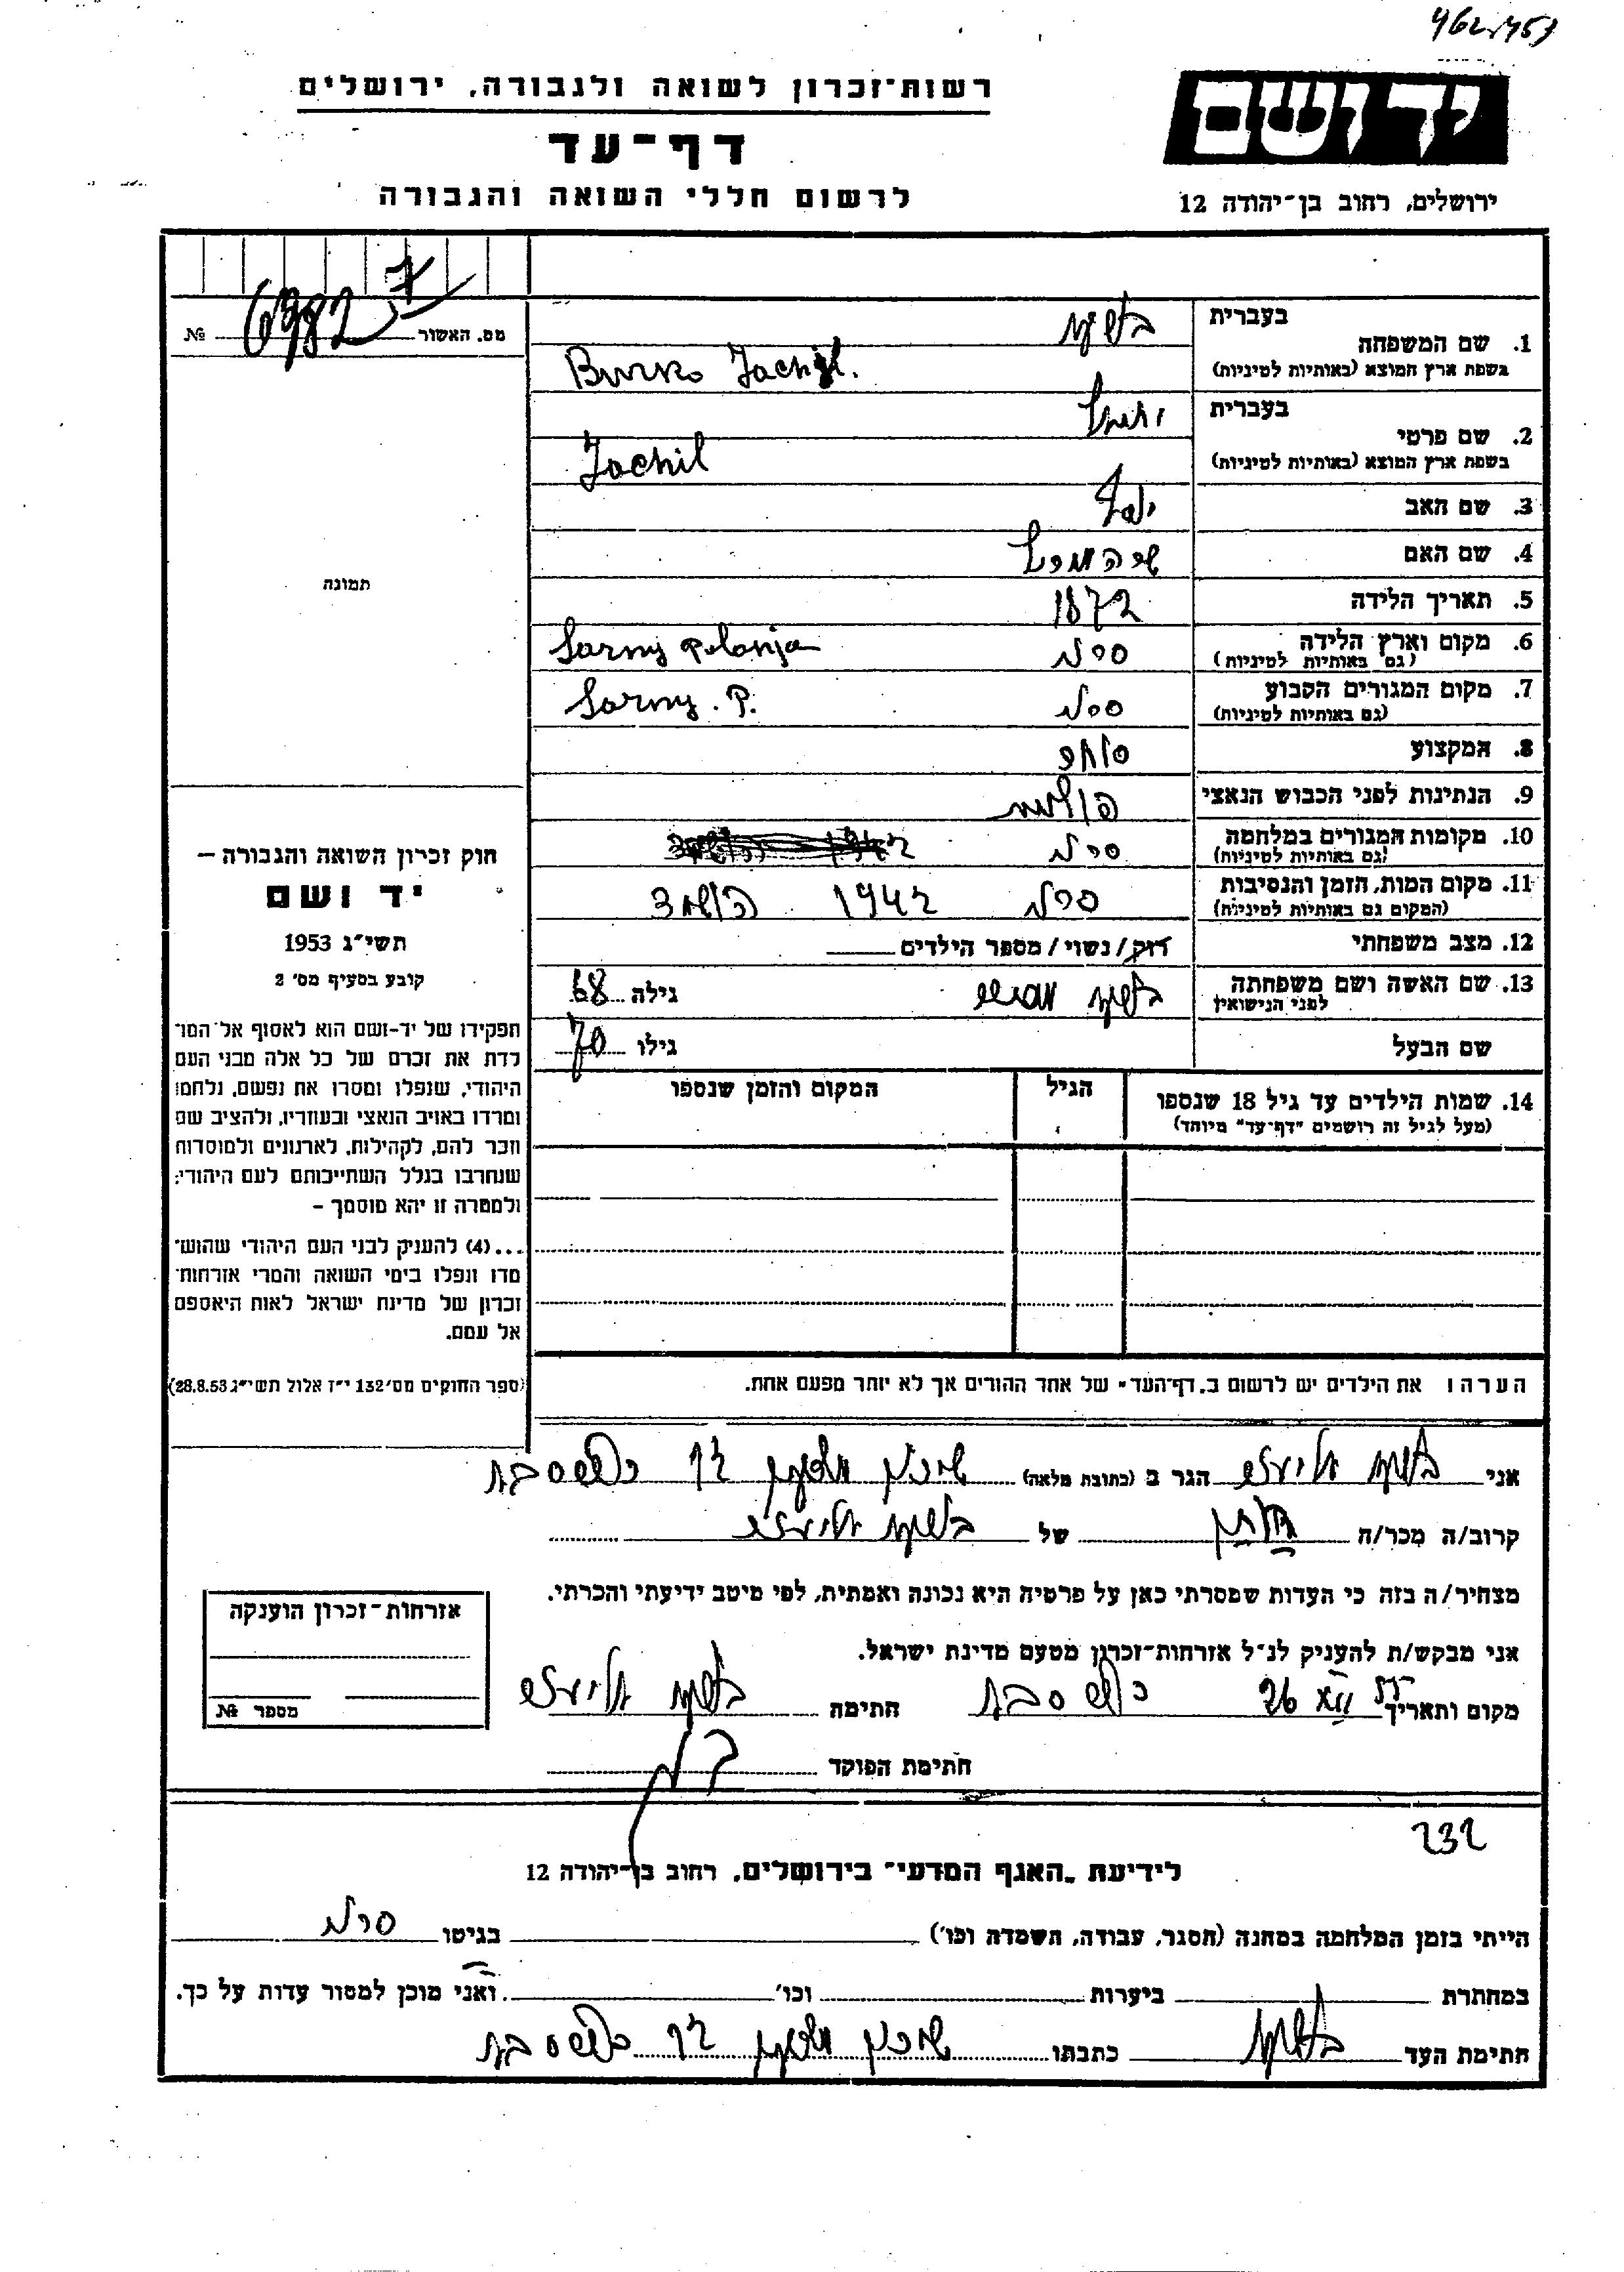 רשות־זכרון לשואה ולגבורה, ירושלים
דף־עד
לרשום חללי השואה והגבורה
יד ושם
ירושלים, רחוב בן־יהודה 12
מס. האשור № 6982
1. שם המשפחה בעברית
(בשפת ארץ המוצא (באותיות לטיניות Burko Jachil.
2. שם פרטי בעברית
(בשפת ארץ המוצא (באותיות לטיניות Jachil
3. שם האב יוסף
4. שם האם
5. תאריך הלידה 1872
6. מקום וארץ הלידה
(גם באותיות לטיניות) סרני Sarny Polonja
7. מקום המגורים הקבוע
(גם באותיות לטיניות) סרני Sarny. P.
8. המקצוע סוחר
9. הנתינות לפני הכבוש הנאצי פולנית
10. מקומות המגורים במלחמה
(גם באותיות לטיניות) סרני
11. מקום המות, הזמן והנסיבות
(המקום גם באותיות לטיניות) סרני 1942 הושמד
12. מצב משפחתי רווק/נשוי/מספר הילדים
13. שם האשה ושם משפחתה
לפני הנישואין גילה 68
שם הבעל גילו 70
14. שמות הילדים עד גיל 18 שנספו
(מעל לגיל זה רושמים "דף־עד" מיוחד)
הגיל
המקום והזמן שנספו
תמונה
חוק זכרון השואה והגבורה –
יד ושם
תשי״ג 1953
קובע בסעיף מס׳ 2
תפקידו של יד־ושם הוא לאסוף אל המו־
לדת את זכרם של כל אלה מבני העם
היהודי, שנפלו ומסרו את נפשם, נלחמו
ומרדו באויב הנאצי ובעוזריו, ולהציב שם
וזכר להם, לקהילות, לארגונים ולמוסדות
שנחרבו בגלל השתייכותם לעם היהודי;
ולמטרה זו יהא מוסמך –
...(4) להעניק לבני העם היהודי שהוש־
מדו ונפלו בימי השואה והמרי אזרחות־
זכרון של מדינת ישראל לאות היאספם
אל עמם.
(ספר החוקים מס׳ 132 י״ז אלול תשי״ג 28.8.53)
הערה: את הילדים יש לרשום ב„דף־העד" של אחד ההורים אך לא יותר מפעם אחת.
אני אליעזר הגר ב (כתובת מלאה) שיכון כפר סבא
קרוב/ה מכר/ה של אליעזר
מצהיר/ה בזה כי העדות שמסרתי כאן על פרטיה היא נכונה ואמתית, לפי מיטב ידיעתי והכרתי.
אני מבקש/ת להעניק לנ״ל אזרחות־זכרון מטעם מדינת ישראל.
מקום ותאריך כפר סבא חתימה אליעזר
חתימת הפוקד
אזרחות־זכרון הוענקה
מספר №
232
לידיעת „האגף המדעי" בירושלים, רחוב בן־יהודה 12
הייתי בזמן המלחמה במחנה (הסגר, עבודה, השמדה וכו׳) בגיטו סרני
במחתרת ביערות וכו׳ ואני מוכן למסור עדות על כך.
חתימת העד כתבתו שיכון כפר סבא